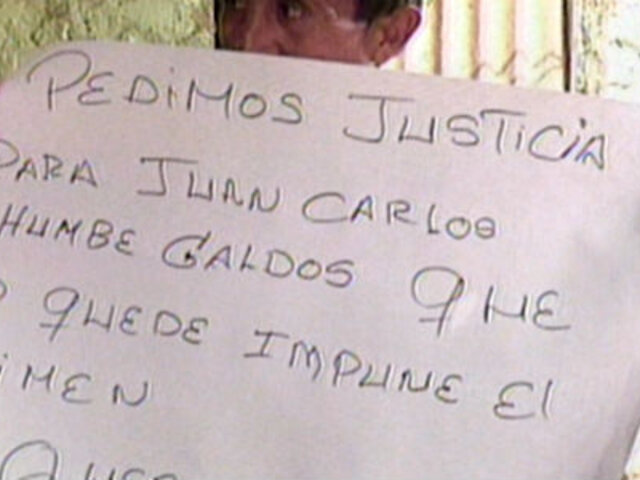 PEDIMOS JUSTICIA
PARA JUAN CARLOS
HUMBE GALDOS QUE
QUEDE IMPUNE El
IMEN